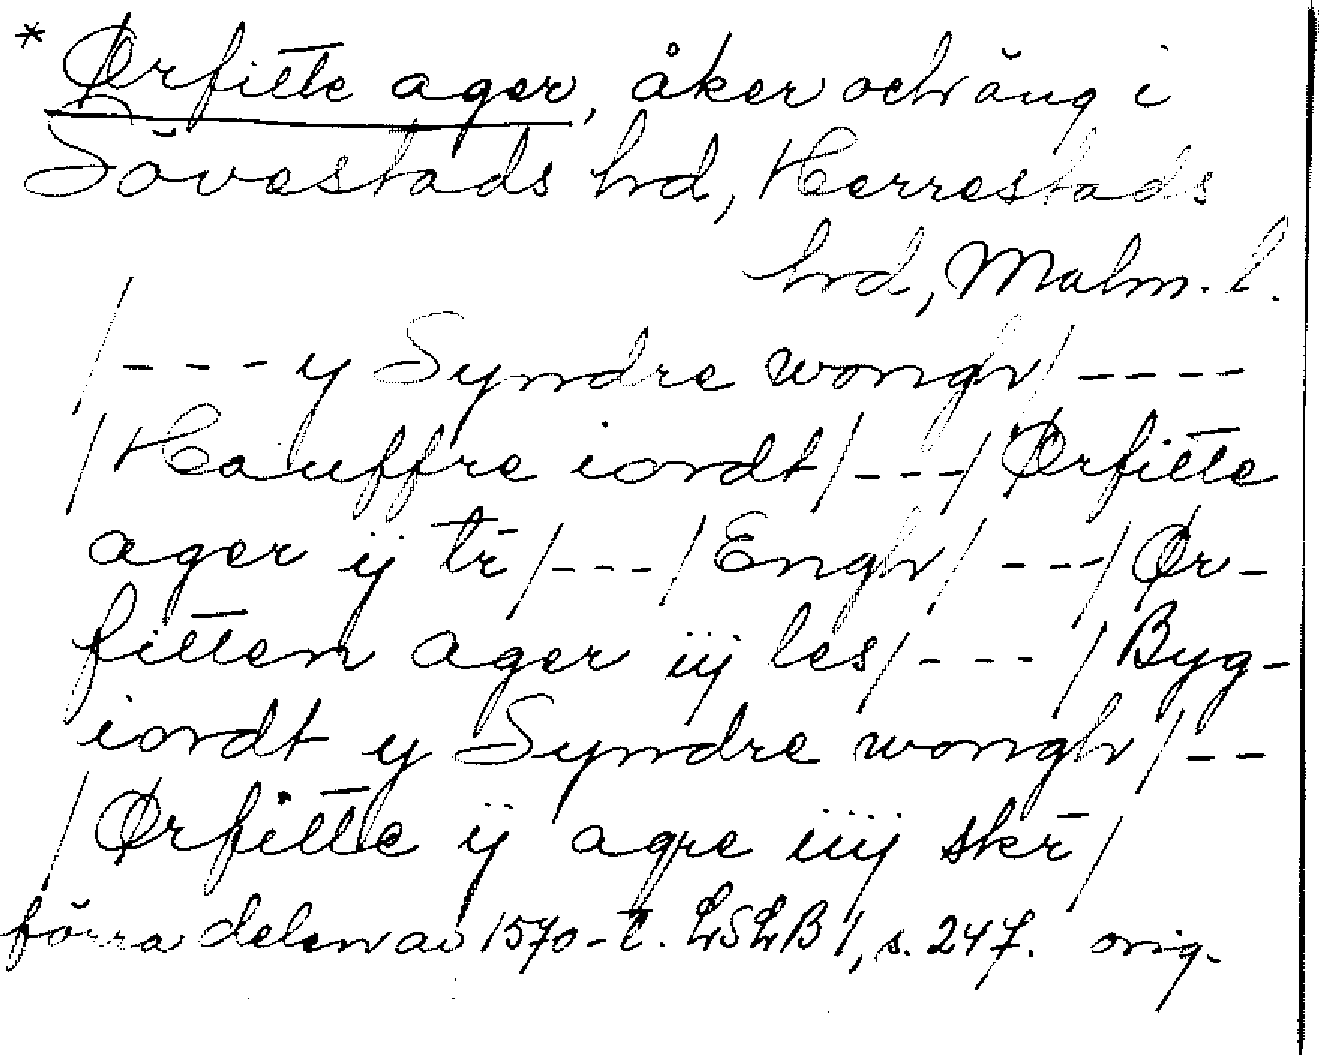 * Ørfitte ager, åker och äng i
Sövestads hrd, Herrestads
hrd, Malm. l.
/---y Syndre wongh/----
/Hauffre iordt/---/Ørfitte
ager ij tr̄/---/Engh/---/Ør-
fitten ager iij les/---/Byg-
iordt y Syndre wongh/--
/Ørfitte ij agre iiij skr̄/
förra delen av 1570-t. LSLB 1, s. 247. orig.